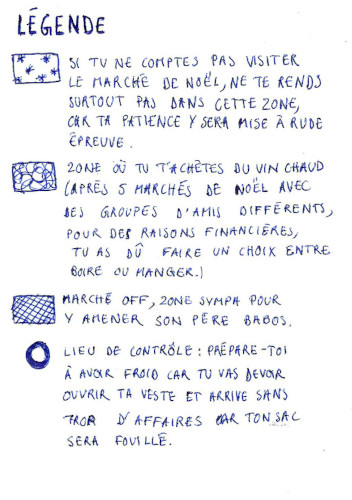 LÉGENDE
SI TU NE COMPTES PAS VISITER
LE MARCHÉ DE NOËL, NE TE RENDS
SURTOUT PAS DANS CETTE ZONE,
CAR TA PATIENCE Y SERA MISE À RUDE
ÉPREUVE.
ZONE OÙ TU T'ACHÈTES DU VIN CHAUD
(APRÈS 5 MARCHÉS DE NOËL AVEC
DES GROUPES D'AMIS DIFFÉRENTS,
POUR DES RAISONS FINANCIÈRES,
TU AS DÛ FAIRE UN CHOIX ENTRE
BOIRE OU MANGER.)
MARCHÉ OFF, ZONE SYMPA POUR
Y AMENER SON PÈRE BABOS.
LIEU DE CONTRÔLE : PRÉPARE-TOI
À AVOIR FROID CAR TU VAS DEVOIR
OUVRIR TA VESTE ET ARRIVE SANS
TROP D'AFFAIRES CAR TON SAC
SERA FOUILLÉ.